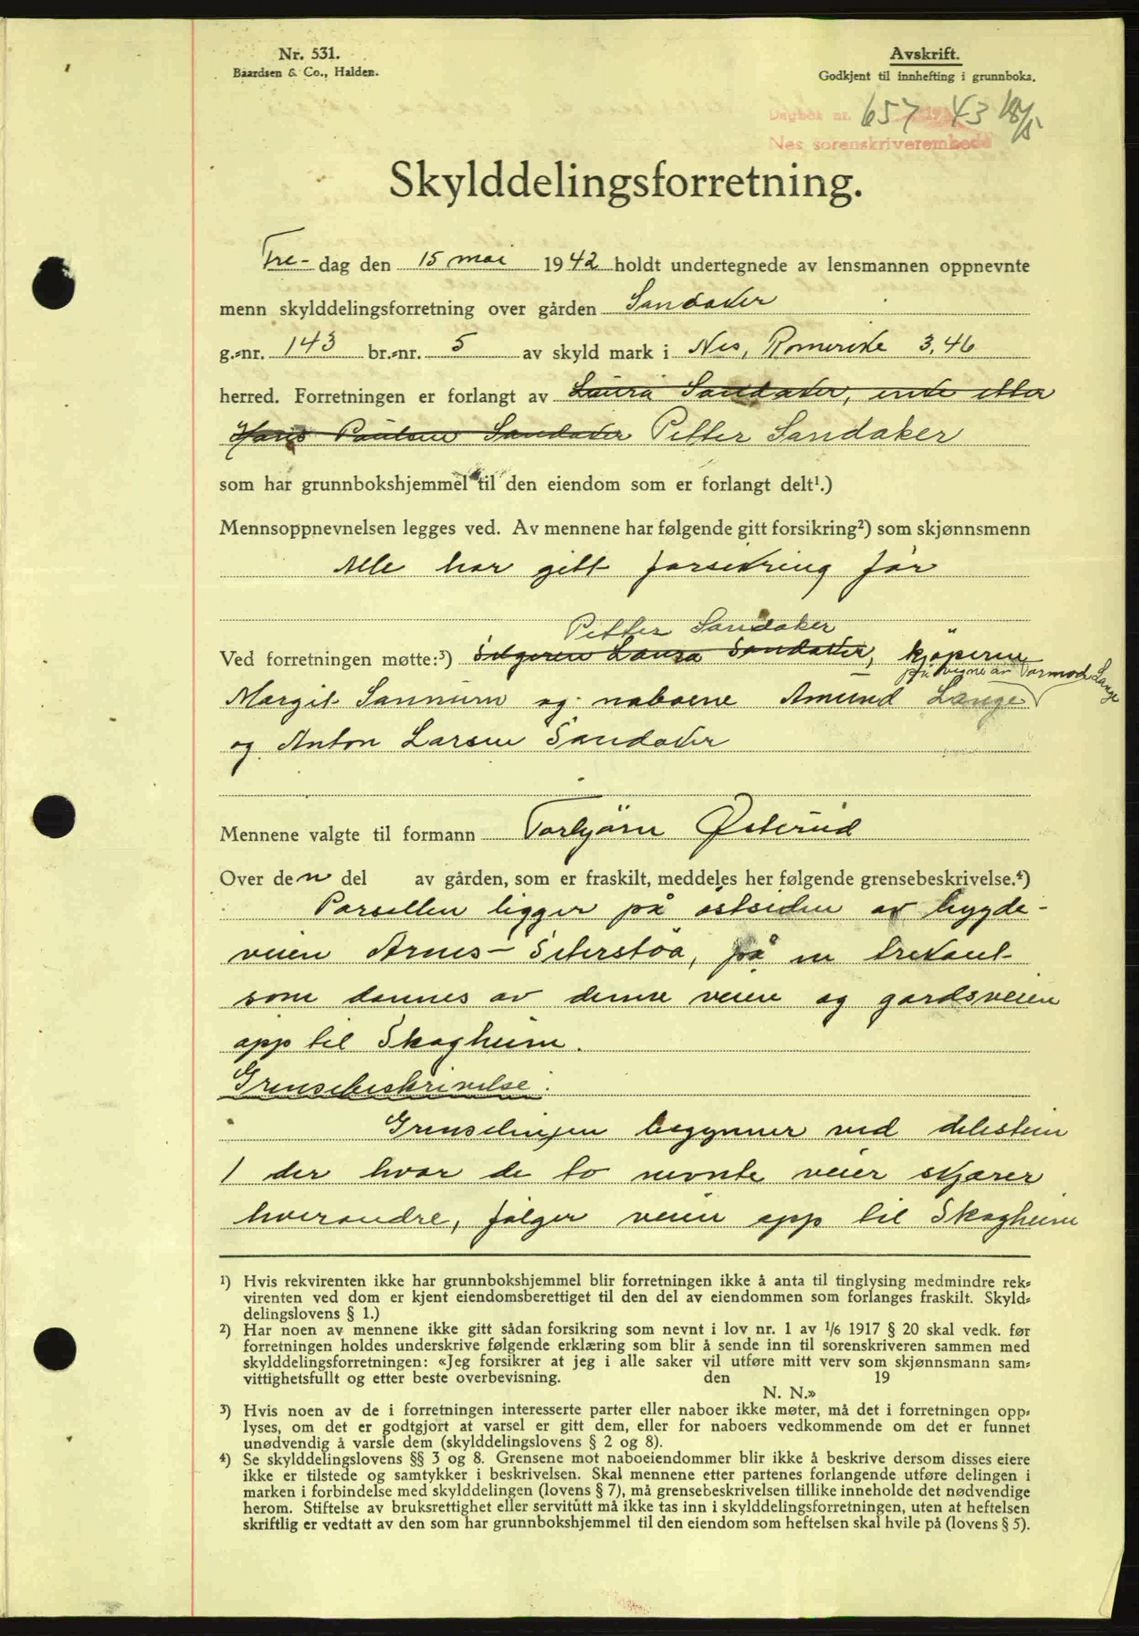 Nr. 531.
Baardsen & Co., Halden.
Avskrift.
Godkjent til innhefting i grunnboka.
Dagbok nr. 657 19 43 18/5
Nes sorenskriverembede
Skylddelingsforretning.
Fre- dag den 15 mai 1942 holdt undertegnede av lensmannen oppnevnte
menn skylddelingsforretning over gården Sandaker
g.-nr. 143 br.-nr. 5 av skyld mark i Nes, Romerike 3,46
herred. Forretningen er forlangt av Laura Sandaker, enke etter
Hans Paulsen Sandaker Petter Sandaker
som har grunnbokshjemmel til den eiendom som er forlangt delt¹.)
Mennsoppnevnelsen legges ved. Av mennene har følgende gitt forsikring²) som skjønnsmenn
Alle har gitt forsikring før
Petter Sandaker
Ved forretningen møtte:³) Selgeren Laura Sandaker, kjøperen
på vegne av Tormod Lange
Margit Sannum og naboene Amund Lange
og Anton Larsen Sandaker
Mennene valgte til formann Torbjørn Østerud
Over den del av gården, som er fraskilt, meddeles her følgende grensebeskrivelse.⁴)
Parsellen ligger på østsiden av bygde-
veien Arnes- Seterstøa, på en trekant
som dannes av denne veien og gardsveien
opp til Skogheim.
Grensebeskrivelse:
Grenselinjen begynner ved delestein
1 der hvor de to nevnte veier skjærer
hverandre, følger veien opp til Skogheim
¹) Hvis rekvirenten ikke har grunnbokshjemmel blir forretningen ikke å anta til tinglysing medmindre rek-
virenten ved dom er kjent eiendomsberettiget til den del av eiendommen som forlanges fraskilt. Skyld-
delingslovens § 1.)
²) Har noen av mennene ikke gitt sådan forsikring som nevnt i lov nr. 1 av 1/6 1917 § 20 skal vedk. før
forretningen holdes underskrive følgende erklæring som blir å sende inn til sorenskriveren sammen med
skylddelingsforretningen: «Jeg forsikrer at jeg i alle saker vil utføre mitt verv som skjønnsmann sam-
vittighetsfullt og etter beste overbevisning. den 19
N. N.»
³) Hvis noen av de i forretningen interesserte parter eller naboer ikke møter, må det i forretningen opp-
lyses, om det er godtgjort at varsel er gitt dem, eller for naboers vedkommende om det er funnet
unødvendig å varsle dem (skylddelingslovens § 2 og 8).
⁴) Se skylddelingslovens §§ 3 og 8. Grensene mot naboeiendommer blir ikke å beskrive dersom disses eiere
ikke er tilstede og samtykker i beskrivelsen. Skal mennene etter partenes forlangende utføre delingen i
marken i forbindelse med skylddelingen (lovens § 7), må grensebeskrivelsen tillike inneholde det nødvendige
herom. Stiftelse av bruksrettighet eller servitutt må ikke tas inn i skylddelingsforretningen, uten at heftelsen
skriftlig er vedtatt av den som har grunnbokshjemmel til den eiendom som heftelsen skal hvile på (lovens § 5).